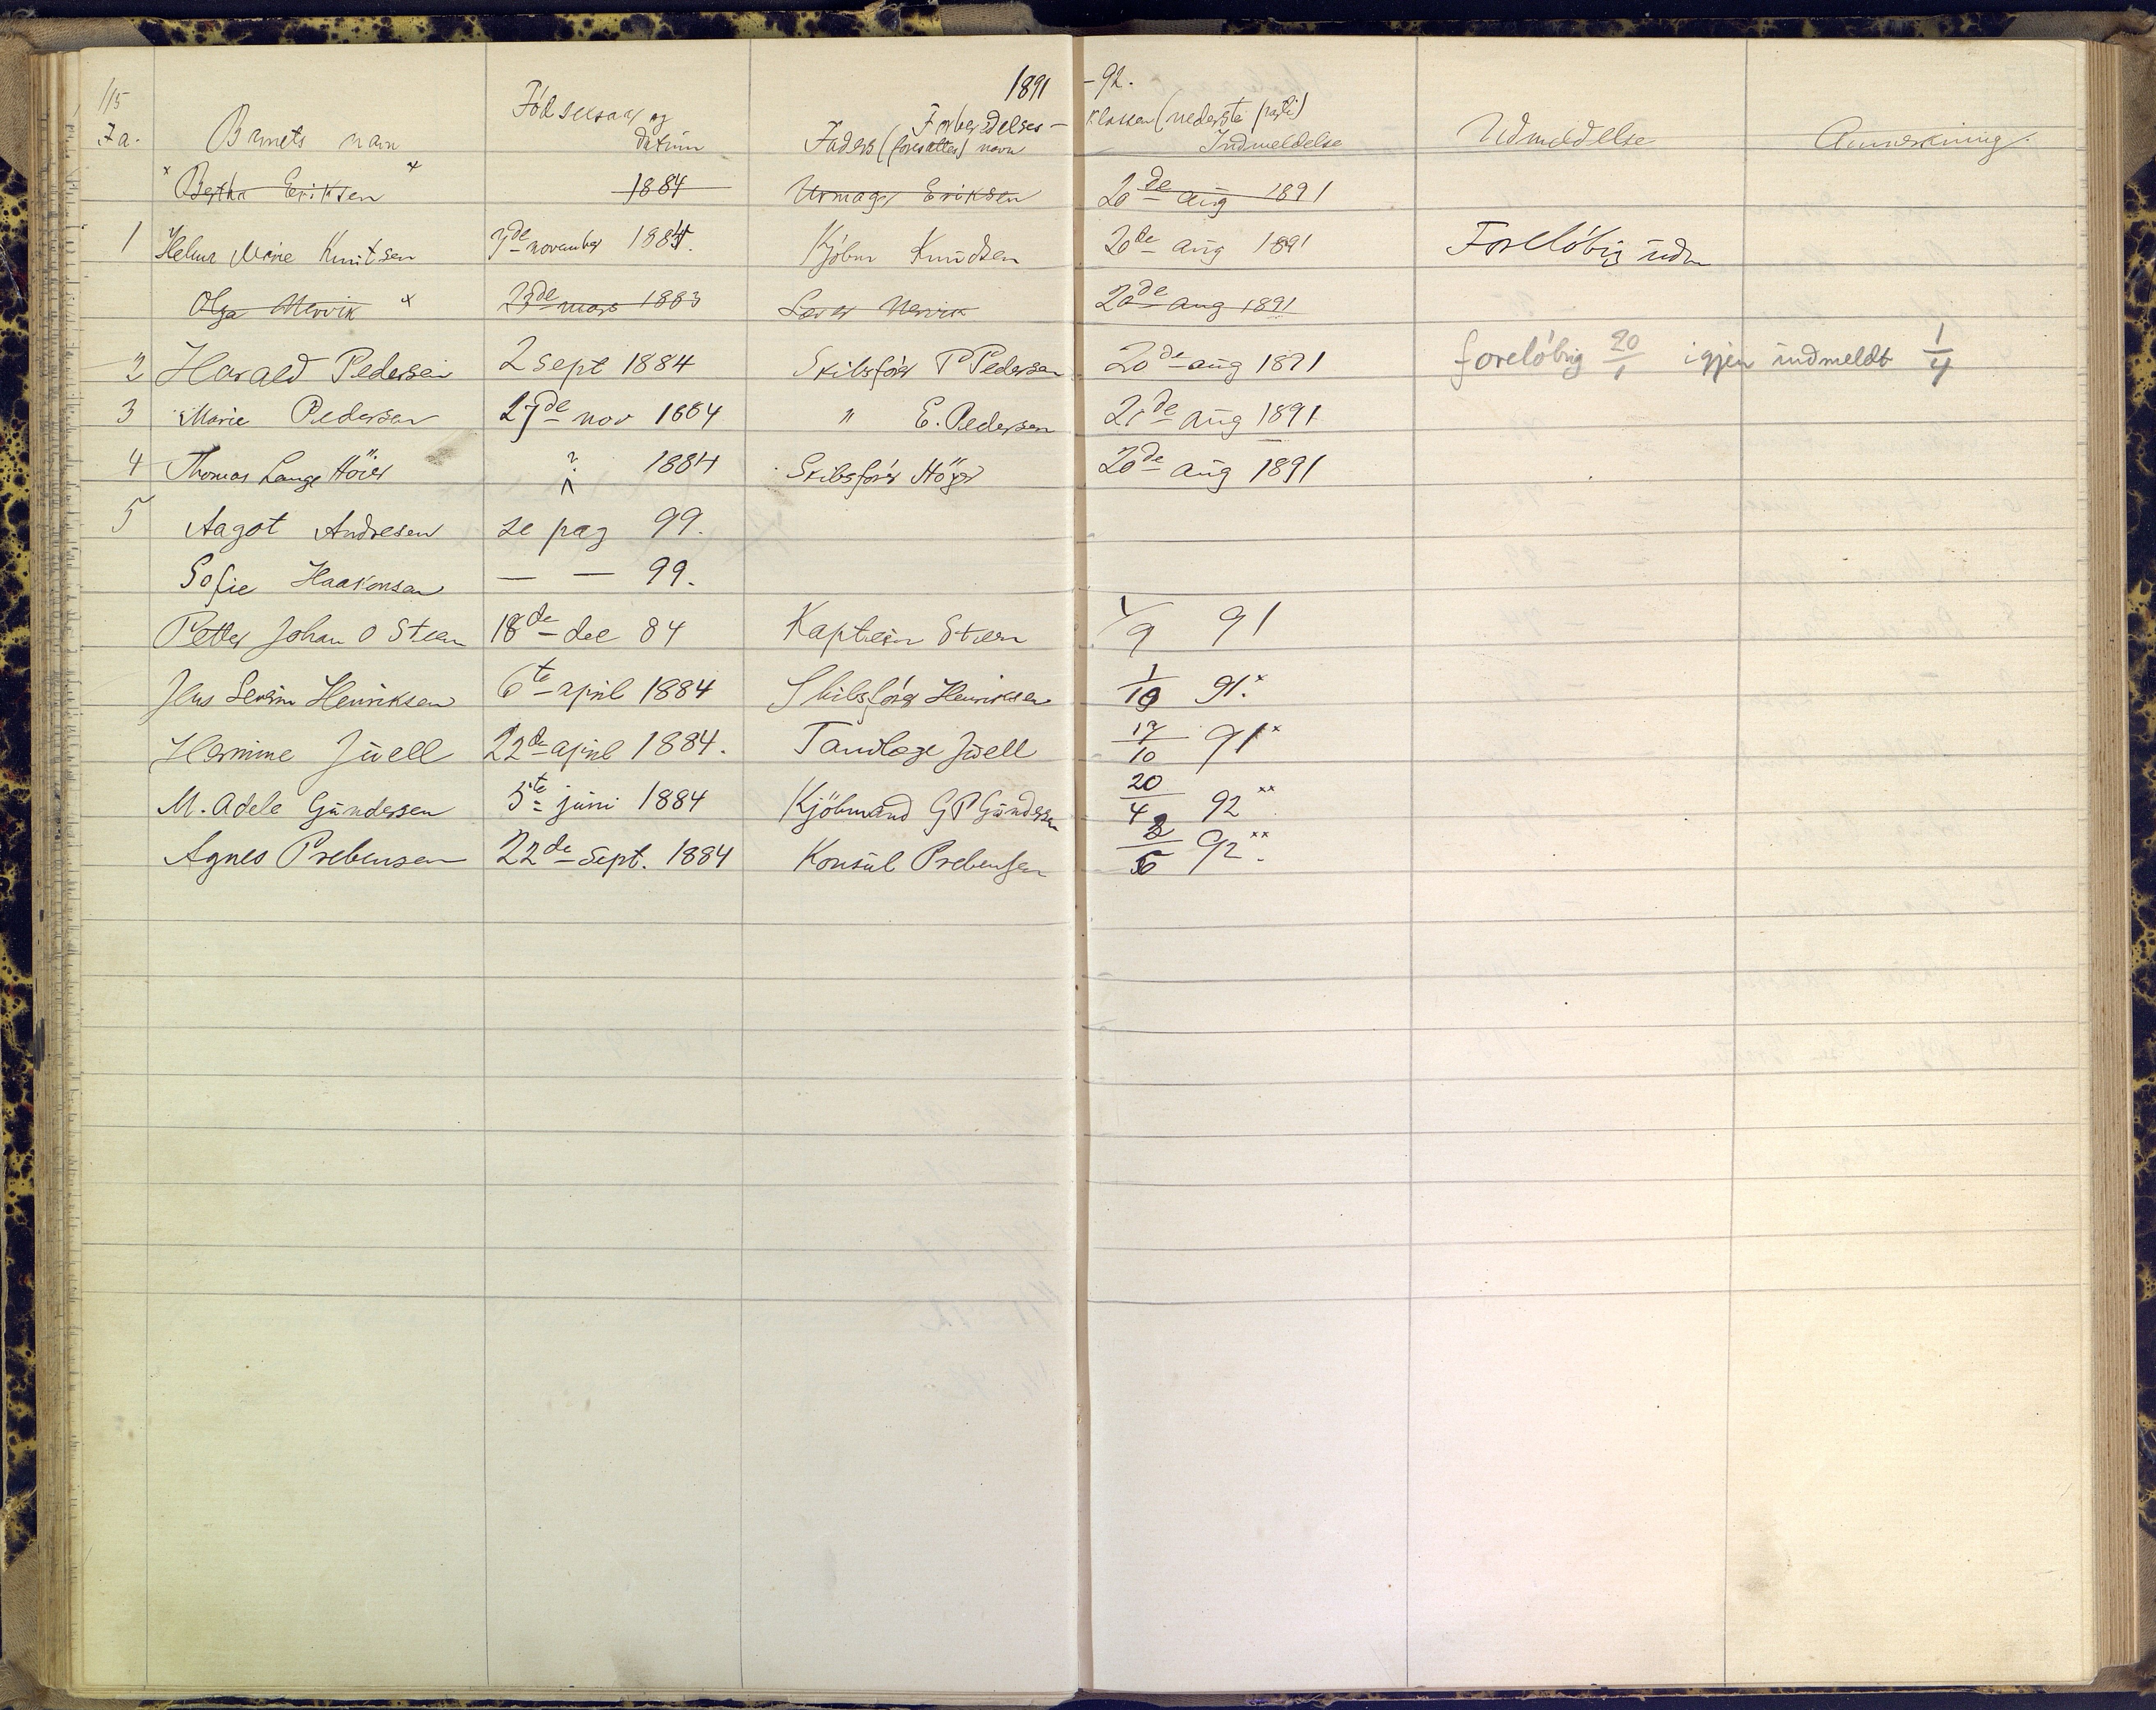 115 1891 - 92.
Forberedelses- klassen (nederste parti)
Barnets navn Födselsaar og datum Faders (foresattes) navn Indmeldelse Udmeldelse Anmerkning.
Bertha Eriksen 1884 Urmager Eriksen 20de aug 1891
1 Helene Marie Knutsen november 1884. Kjöbm Knudsen 20de aug 1891 Foreløbig udm
Olga 23de mars 1883 20de aug 1891
2 Harald Pedersen 2 sept 1884 Skibsförer P Pedersen 20de aug 1891 foreløbig 20/1 igjen indmeldt 1/4
3 Marie Pedersen 27de nov 1884 " E. Pedersen 21de aug 1891
4 Thomas Lange Höier ? 1884 Skibsförer Höyer 20de aug 1891
5 Aagot Andresen se pag 99.
Sofie Haakonsen — — 99.
Petter Johan O Steen 18de dec 84 Kaptein Steen 1/9 91
Jens Severin Henriksen 6te april 1884 Skibsförer Henriksen 1/10 91.x
Hermine Juell 22de april 1884. Tandlæge Juell 17/10 91x
M. Adele Gundersen 5te juni 1884 Kjöbmand G P Gundersen 20/4 92xx
Agnes Prebensen 22de Sept. 1884 Konsul Prebensen 2/5 92xx